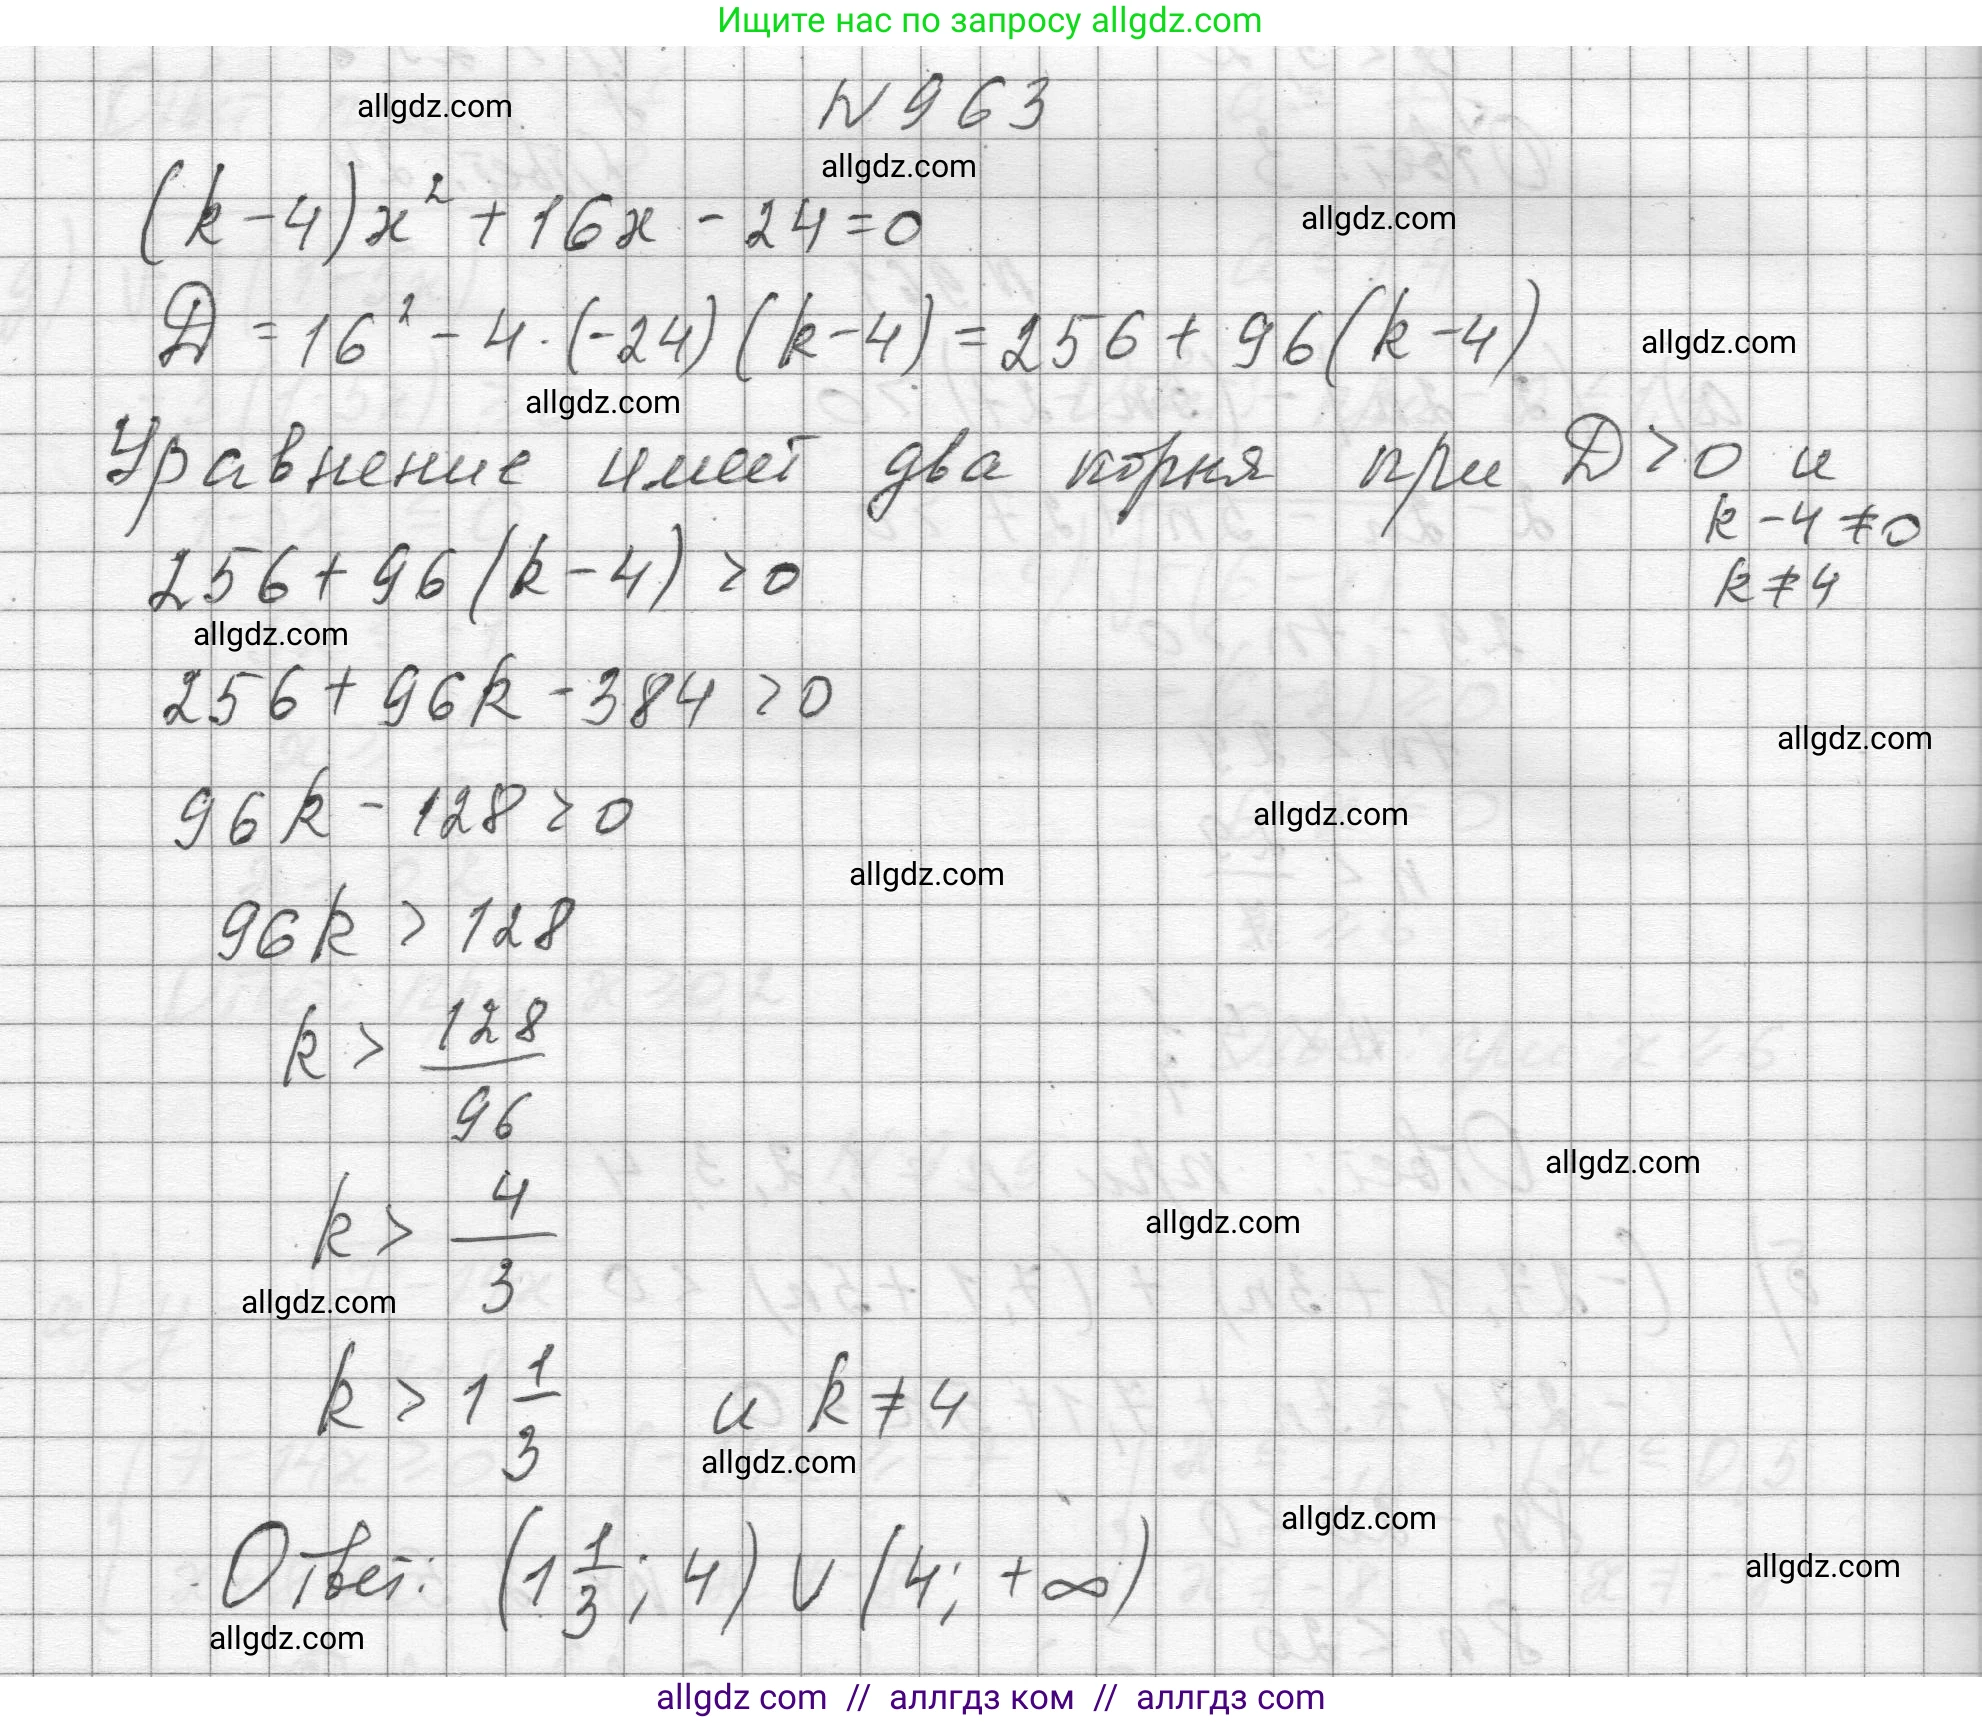 Ищите нас по запросу allgdz.com
allgdz.com
N 963
allgdz.com
(k-4)x² + 16x - 24 = 0
allgdz.com
D = 16² - 4·(-24)(k-4) = 256 + 96(k-4)
allgdz.com
allgdz.com
Уравнение имеет два корня при D > 0 и
k - 4 ≠ 0
256 + 96(k-4) > 0
k ≠ 4
allgdz.com
256 + 96k - 384 > 0
allgdz.com
96k - 128 > 0
allgdz.com
allgdz.com
96k > 128
k > 128/96
allgdz.com
k > 4/3
allgdz.com
allgdz.com
k > 1 1/3 и k ≠ 4
allgdz.com
allgdz.com
Ответ: (1 1/3; 4) ∪ (4; +∞)
allgdz.com
allgdz.com
allgdz com // аллгдз ком // аллгдз com